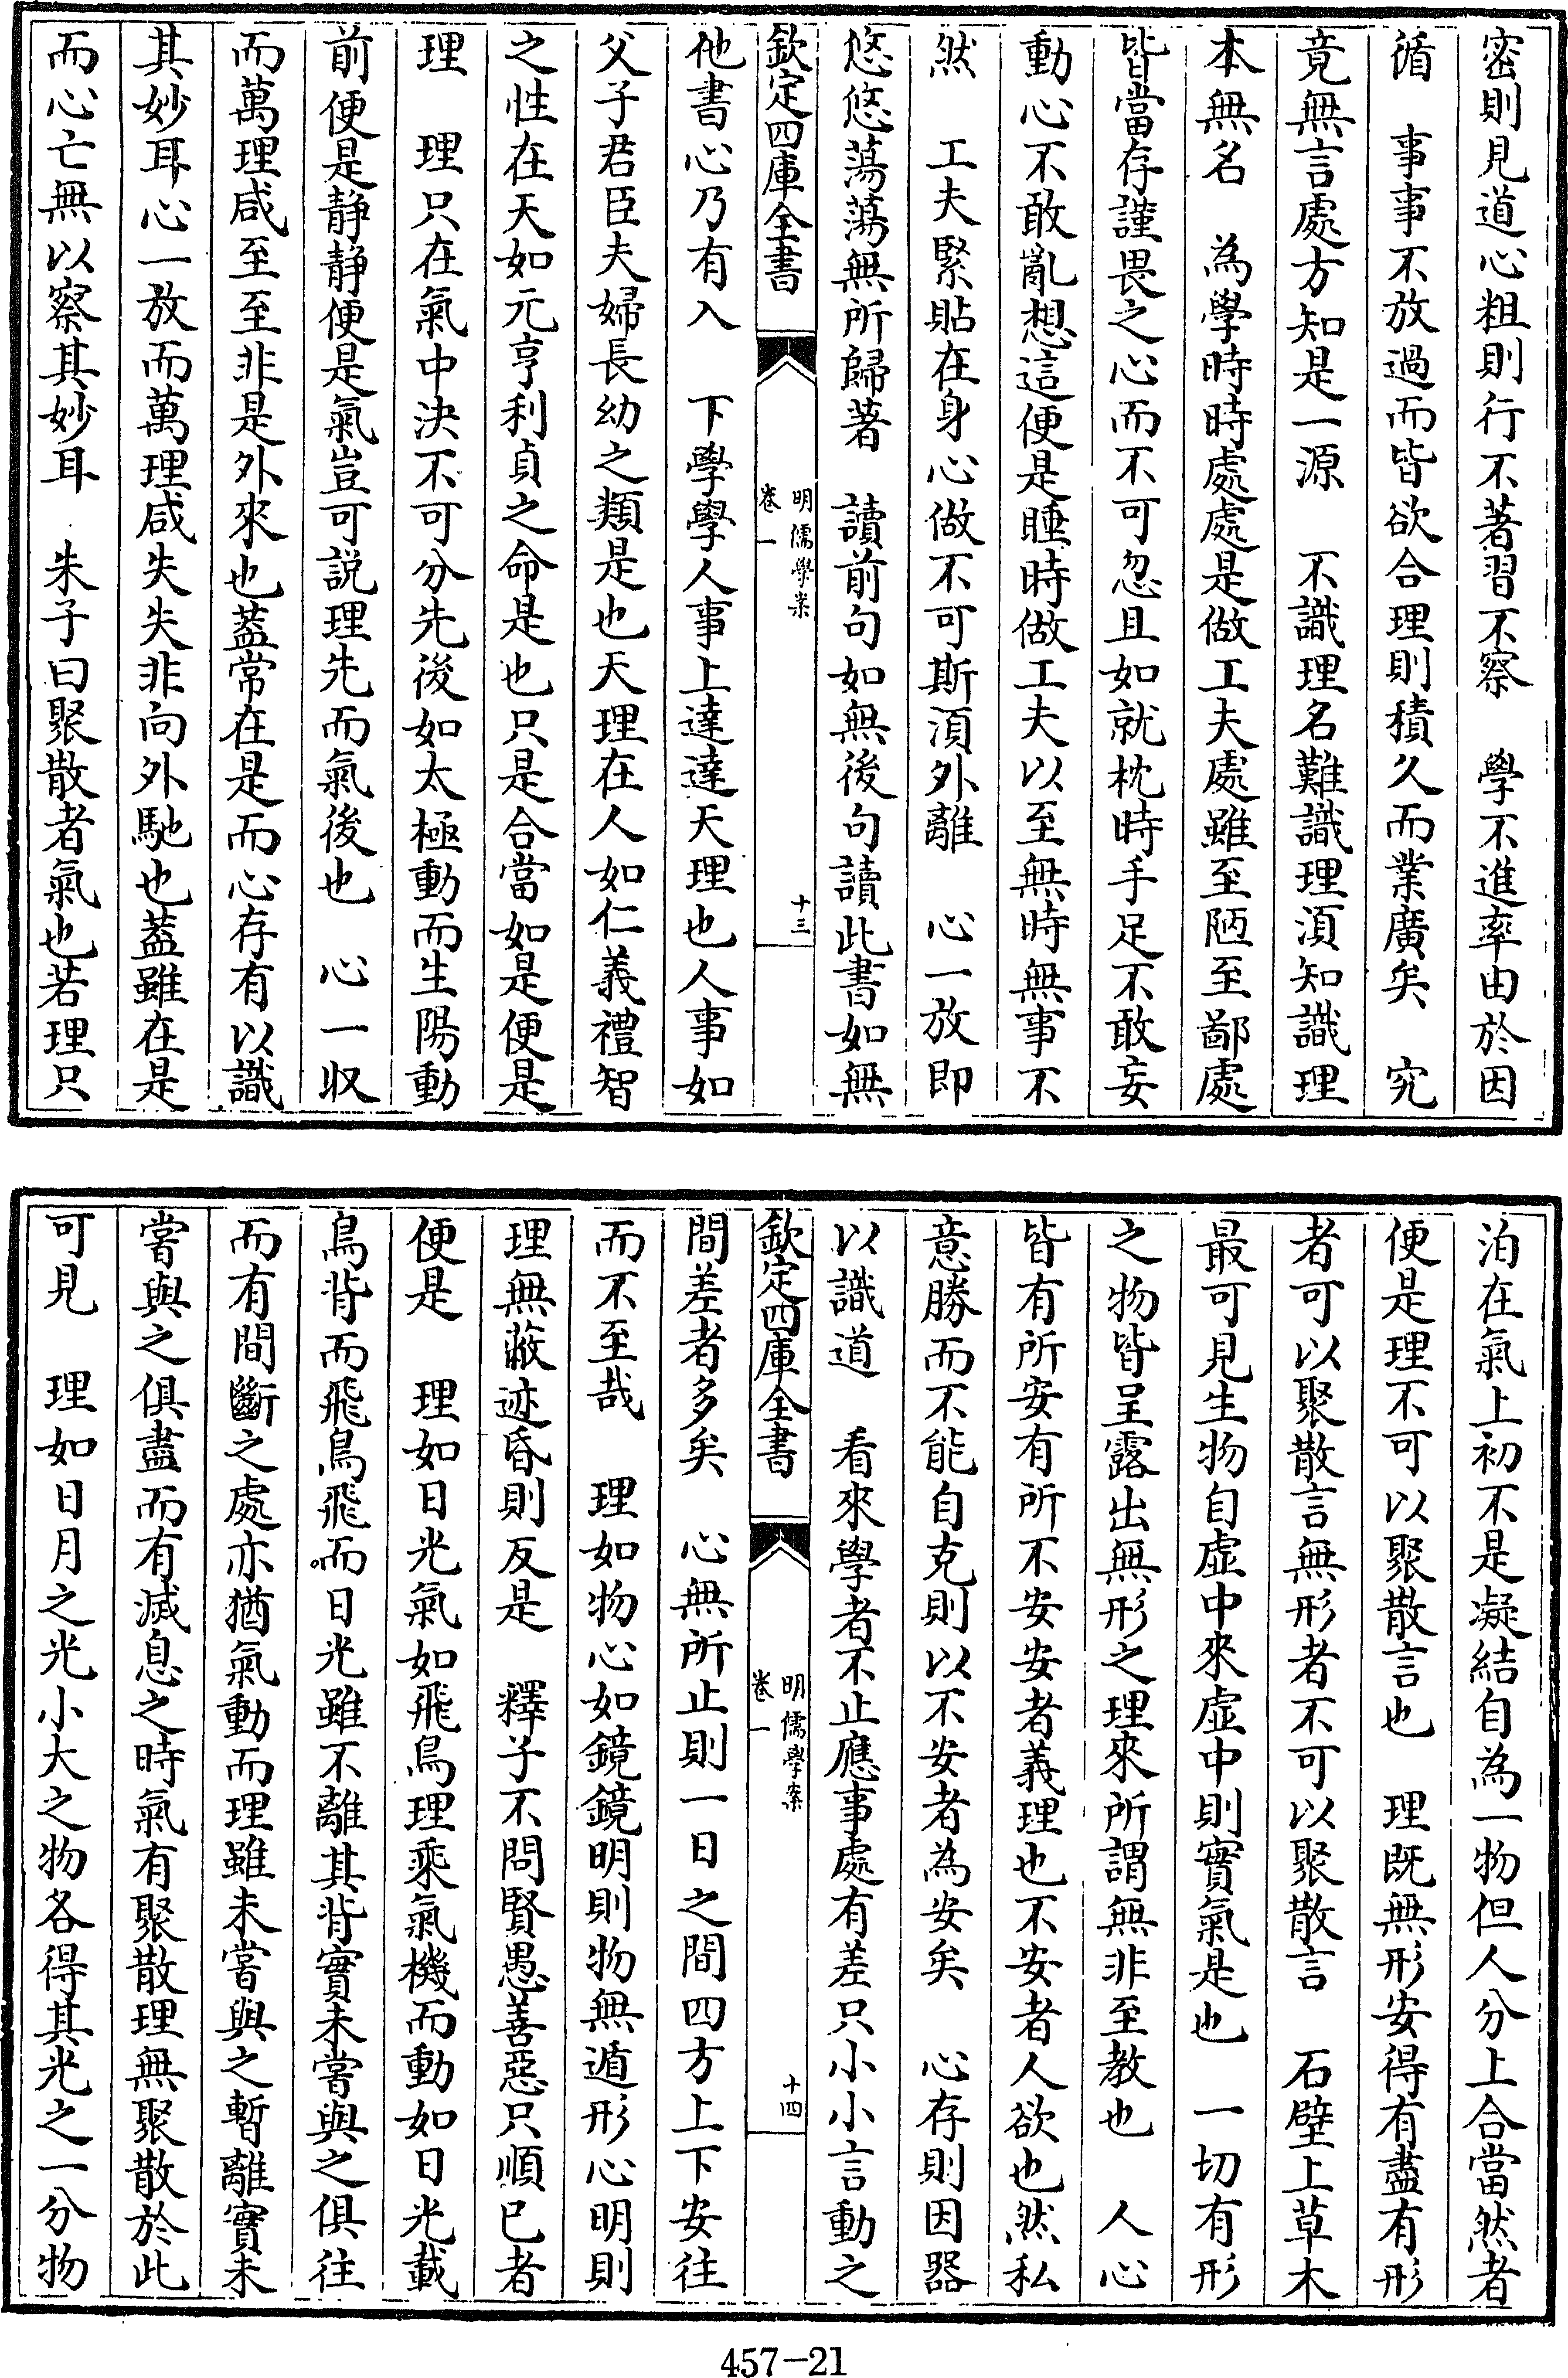 密則見道心粗則行不著習不察　學不進率由於因
循　事事不放過而皆欲合理則積久而業廣矣　究
竟無言處方知是一源　不識理名難識理須知識理
本無名　為學時時處處是做工夫處雖至陋至鄙處
皆當存謹畏之心而不可忽且如就枕時手足不敢妄
動心不敢亂想這便是睡時做工夫以至無時無事不
然　工夫緊貼在身心做不可斯須外離　心一放即
悠悠蕩蕩無所歸著　讀前句如無後句讀此書如無
欽定四庫全書　明儒學案　卷一　十三
他書心乃有入　下學學人事上達達天理也人事如
父子君臣夫婦長幼之類是也天理在人如仁義禮智
之性在天如元亨利貞之命是也只是合當如是便是
理　理只在氣中決不可分先後如太極動而生陽動
前便是靜靜便是氣豈可説理先而氣後也　心一収
而萬理咸至至非是外來也蓋常在是而心存有以識
其妙耳心一放而萬理咸失失非向外馳也蓋雖在是
而心亡無以察其妙耳　朱子曰聚散者氣也若理只
泊在氣上初不是凝結自為一物但人分上合當然者
便是理不可以聚散言也　理既無形安得有盡有形
者可以聚散言無形者不可以聚散言　石壁上草木
最可見生物自虛中來虛中則實氣是也　一切有形
之物皆呈露出無形之理來所謂無非至教也　人心
皆有所安有所不安安者義理也不安者人欲也然私
意勝而不能自克則以不安者為安矣　心存則因器
以識道　看來學者不止應事處有差只小小言動之
欽定四庫全書　明儒學案　卷一　十四
間差者多矣　心無所止則一日之間四方上下安往
而不至哉　理如物心如鏡鏡明則物無遁形心明則
理無蔽迹昏則反是　釋子不問賢愚善惡只順已者
便是　理如日光氣如飛鳥理乘氣機而動如日光載
鳥背而飛鳥飛而日光雖不離其背實未嘗與之俱往
而有間斷之處亦猶氣動而理雖未嘗與之暫離實未
嘗與之俱盡而有滅息之時氣有聚散理無聚散於此
可見　理如日月之光小大之物各得其光之一分物
457-21